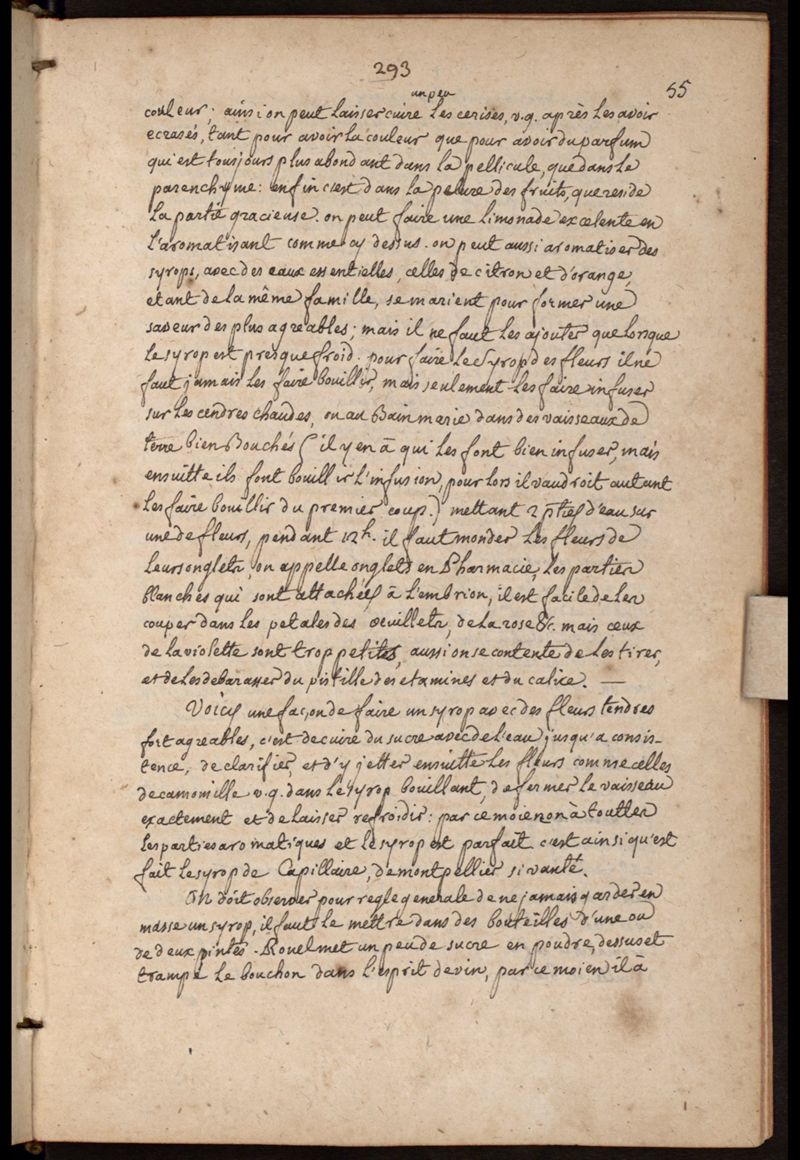 293
55
un peu
couleur; ainsi on peut laisser cuire les cerises, v.g. après les avoir
ecrasés, tant pour avoir la couleur que pour avoir du parfum
qui est tousjours plus abondant dans la pellicule, que dans le
parenchyme: enfin c'est dans la peaure des fruits, que reside
la partie gracieuse. on peut faire une limonade excelente en
l'aromatisant comme cy dessus. on peut aussi aromatiser des
syrops, avec des eaux essentielles, celles de citron et d'orange,
etant de la même famille, se marient pour former une
saveur des plus agreables; mais il ne faut les ajouter que lorsque
le syrop est presque froid. pour faire le syrop des fleurs il ne
faut jamais les faire bouillir, mais seulement les faire infuser
sur les cendres chaudes, ou au Bain marie dans des vaisseaux de
terre bien Bouchés (il y en à qui les font bien infuser, mais
ensuitte ils font bouillir l'infusion, pour lors il vaudroit autant
les faire bouillir du premier coup.) mettant 2 pties d'eau sur
une de fleurs, pendant 12h. il faut monder les fleurs de
leurs onglets, on appelle onglets en Pharmacie, les parties
blanches qui sont attachées à l'embrion, il est facile de les
couper dans les petales des oeuillets, de la rose &c. mais ceux
de la violette sont trop petites, aussi on se contente de les tirer,
et de les debarasser du pistille des etamines et du calice. —
Voicy une façon de faire un syrop avec des fleurs tendres
fort agreables, c'est de cuire du sucre avec de l'eau jusqu'a consis-
tence, de clarifier, et d'y jetter ensuitte les fleurs comme celles
de camomille v.g. dans le syrop bouillant, de fermer le vaisseau
exactement et de laisser refroidir: par ce moien on à touttes
les parties aromatiques et le syrop est parfait. c'est ainsi qu'est
fait le syrop de Capillaire, de montpellier si vanté.
On doit observer pour regle generale de ne jamais garder en
masse un syrop, il faut le mettre dans des bouteilles d'une ou
de deux pintes. Rouel met un peu de sucre en poudre, dessus et
trampe le bouchon dans l'esprit de vin, par ce moien il à